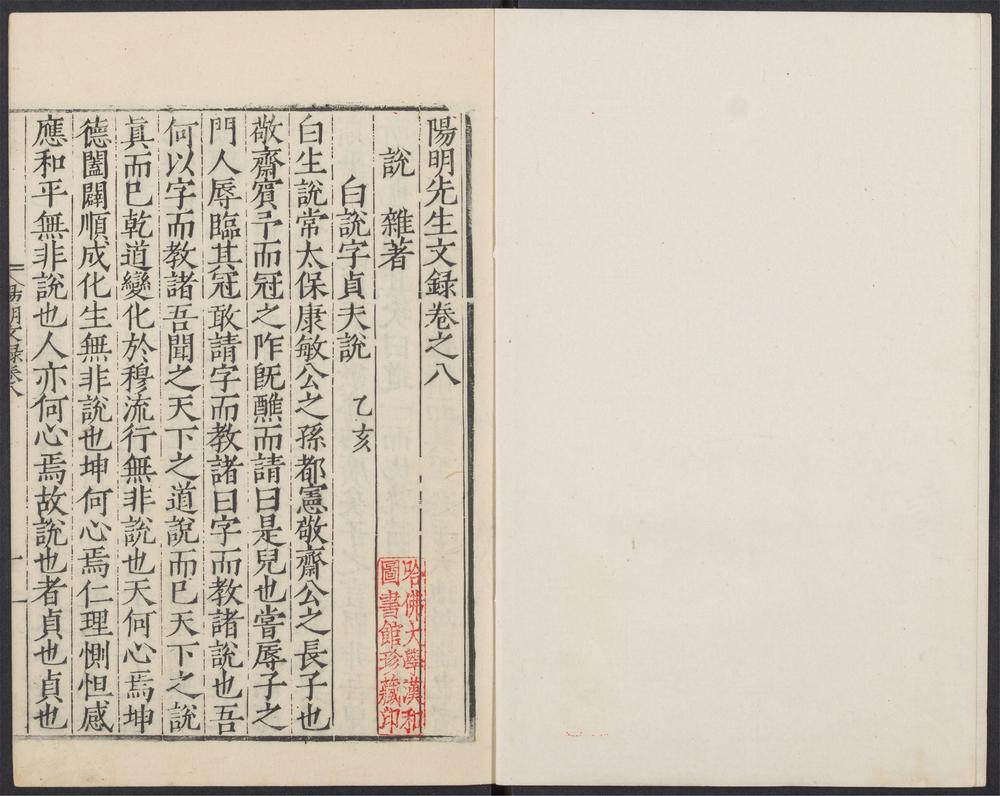 陽明先生文録卷之八
說 雜著
白說字貞夫說 乙亥
白生說常太保康敏公之孫都憲敬齋公之長子也
敬齋賔予而冠之阼旣醮而請曰是兒也嘗辱子之
門人辱臨其冠敢請字而教諸曰字而教諸說也吾
何以字而教諸吾聞之天下之道說而已天下之說
貞而已乾道變化於穆流行無非說也天何心焉坤
德闔闢順成化生無非說也坤何心焉仁理惻怛感
應和平無非說也人亦何心焉故說也者貞也貞也
陽明文録卷八
一
哈佛大學漢和
圖書館珍藏印